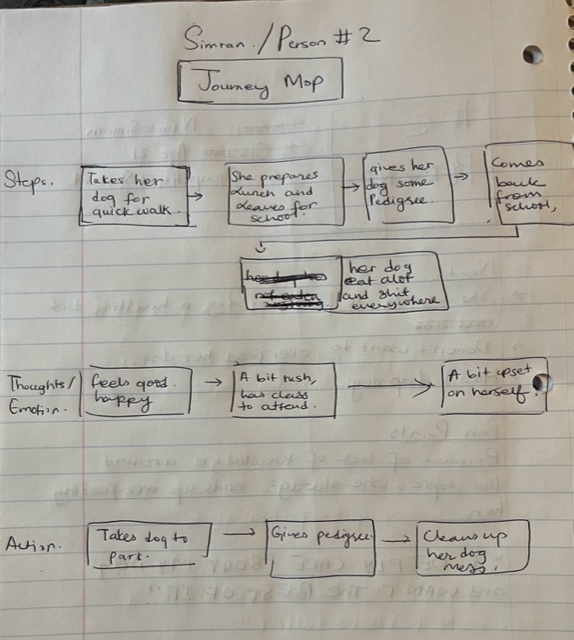 Simran./Person #2
Journey Map
Steps.
Takes her
dog for
quick walk.
She prepares
Lunch and
Leaves for
school.
gives her
dog some
Pedigree.
Comes
back
from
school,
her dog
eat alot
and shit
everywhere
Thoughts/
Emotion.
feels good.
happy
A bit rush,
has class
to attend.
A bit upset
on herself.
Action.
Takes dog to
park.
Gives pedigree.
Cleans up
her dog
mess.